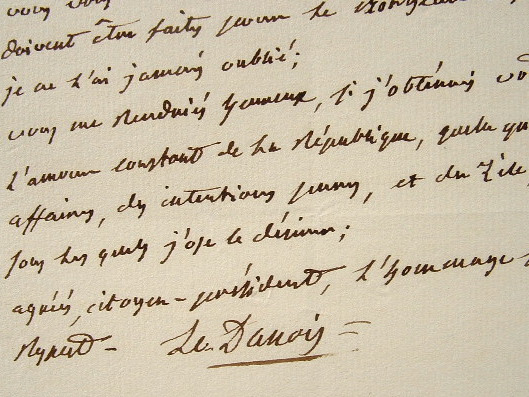 vous vous
doivent être faits pour le
je ne l'ai jamais oublié;
vous me rendriés heureux, si j'obtenais
l'amour constant de la République, quelque
affaires, des intentions pures, et du zèle
sous les quels j'ose le désirer;
agréés, citoyen-président, l'hommage
respect - Le Danois =